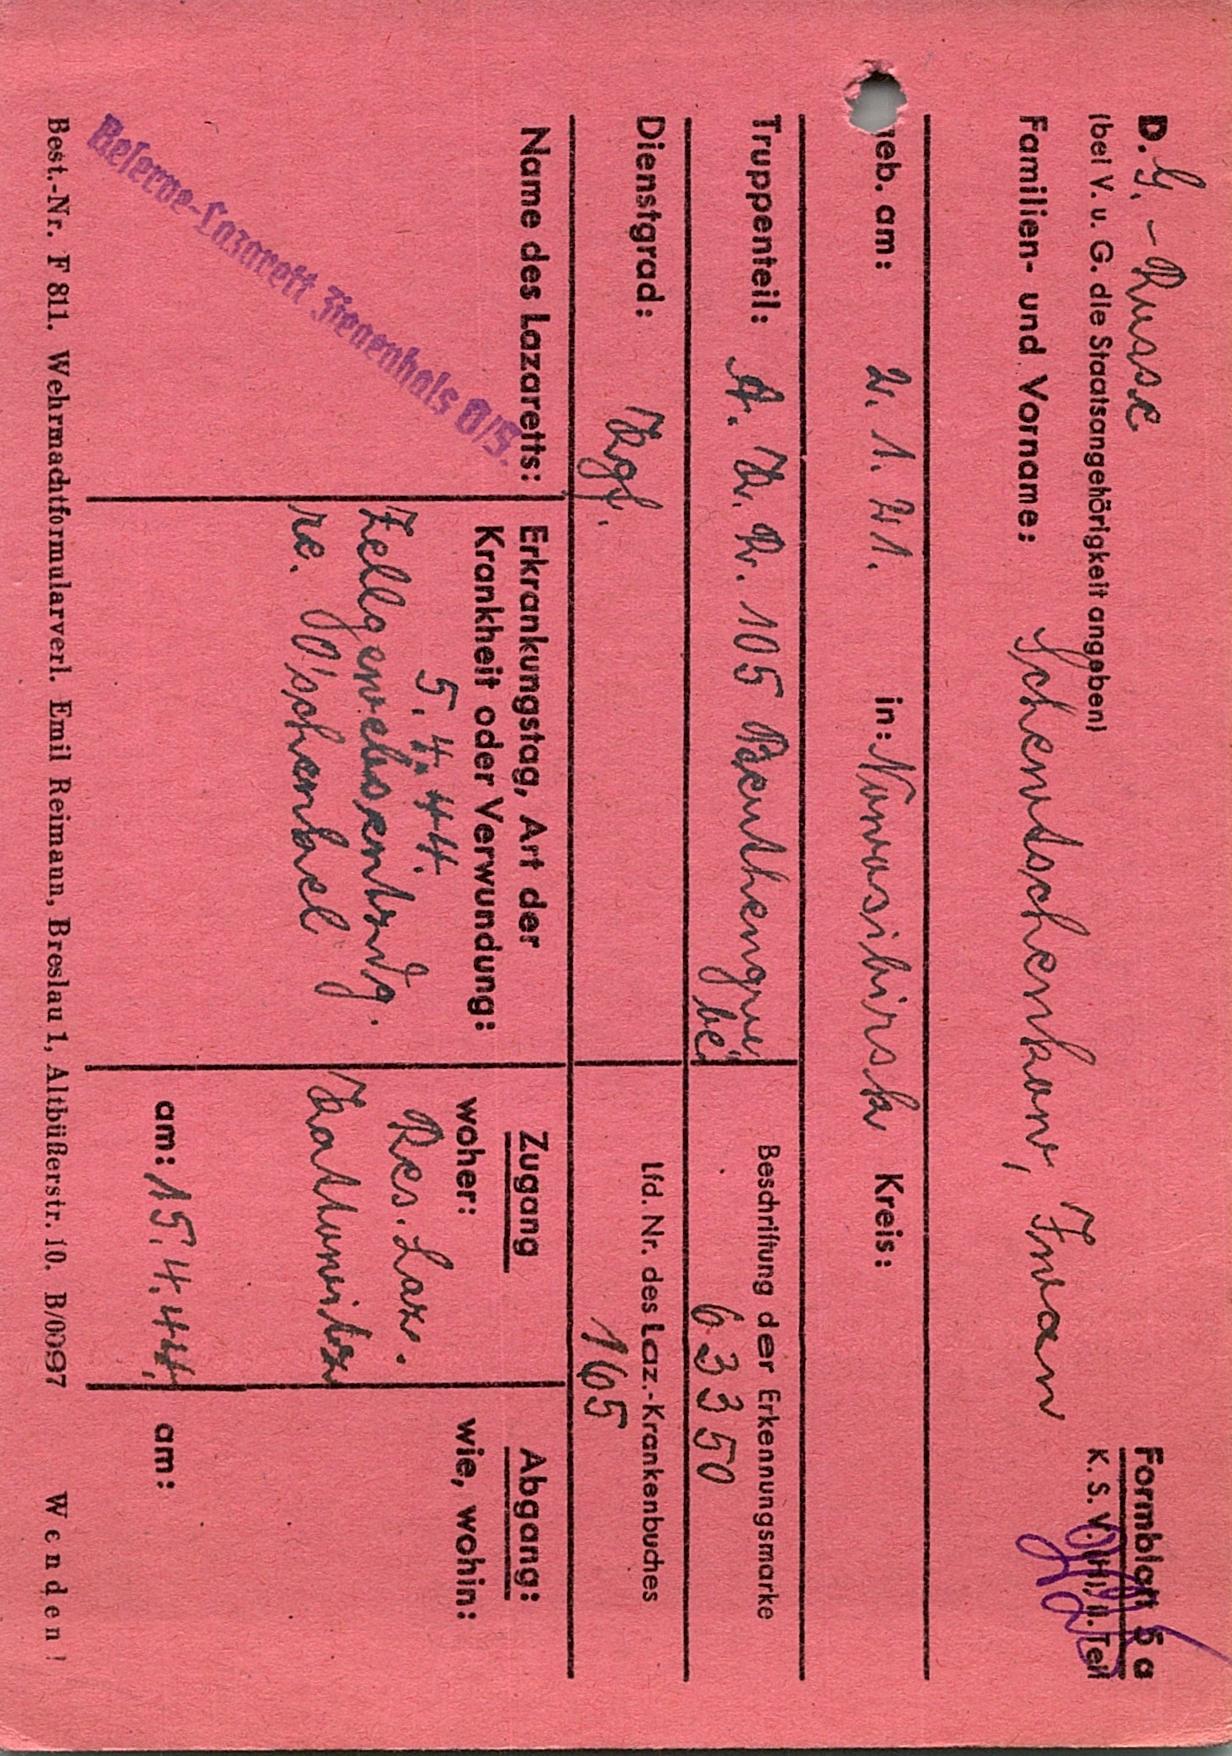 D. G. - Russe
Formblatt 5 a
(bei V. u. G. die Staatsangehörigkeit angeben)
K. S. V. (H), II. Teil
Familien- und Vorname: Schewtschenkow, Iwan
geb. am: 2. 1. 21. in: Nowosibirsk Kreis:
Truppenteil: A. K. R. 105 Beuthengru
be
Beschriftung der Erkennungsmarke
63350
Dienstgrad: Kgf.
Lfd. Nr. des Laz.-Krankenbuches
165
Name des Lazaretts:
Reserve-Lazarett Ziegenhals O/S.
Erkrankungstag, Art der
Krankheit oder Verwundung:
5. 4. 44.
Zellgewebsentzdg.
re. O'schenkel
Zugang
woher:
Res. Laz.
Kattowitz
am: 15. 4. 44.
Abgang:
wie, wohin:
am:
Best.-Nr. F 811. Wehrmachtformularverl. Emil Reimann, Breslau 1, Altbüßerstr. 10. B/0097
Wenden!